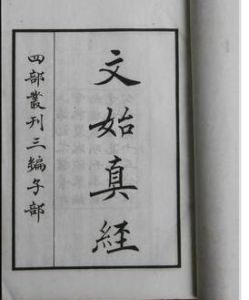 文始真経
四部叢刊三編子部